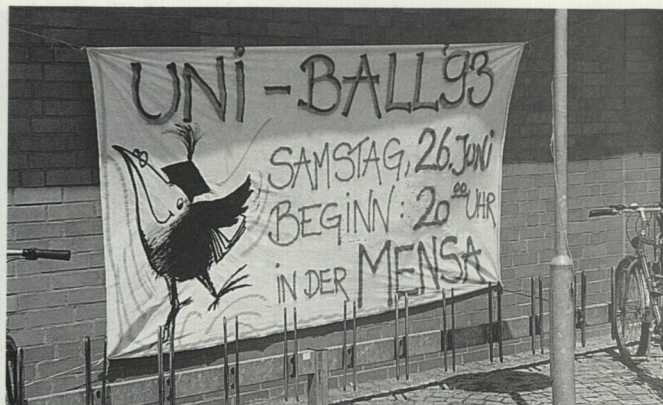 UNI-BALL '93
SAMSTAG, 26. JUNI
BEGINN: 20⁰⁰ UHR
IN DER MENSA